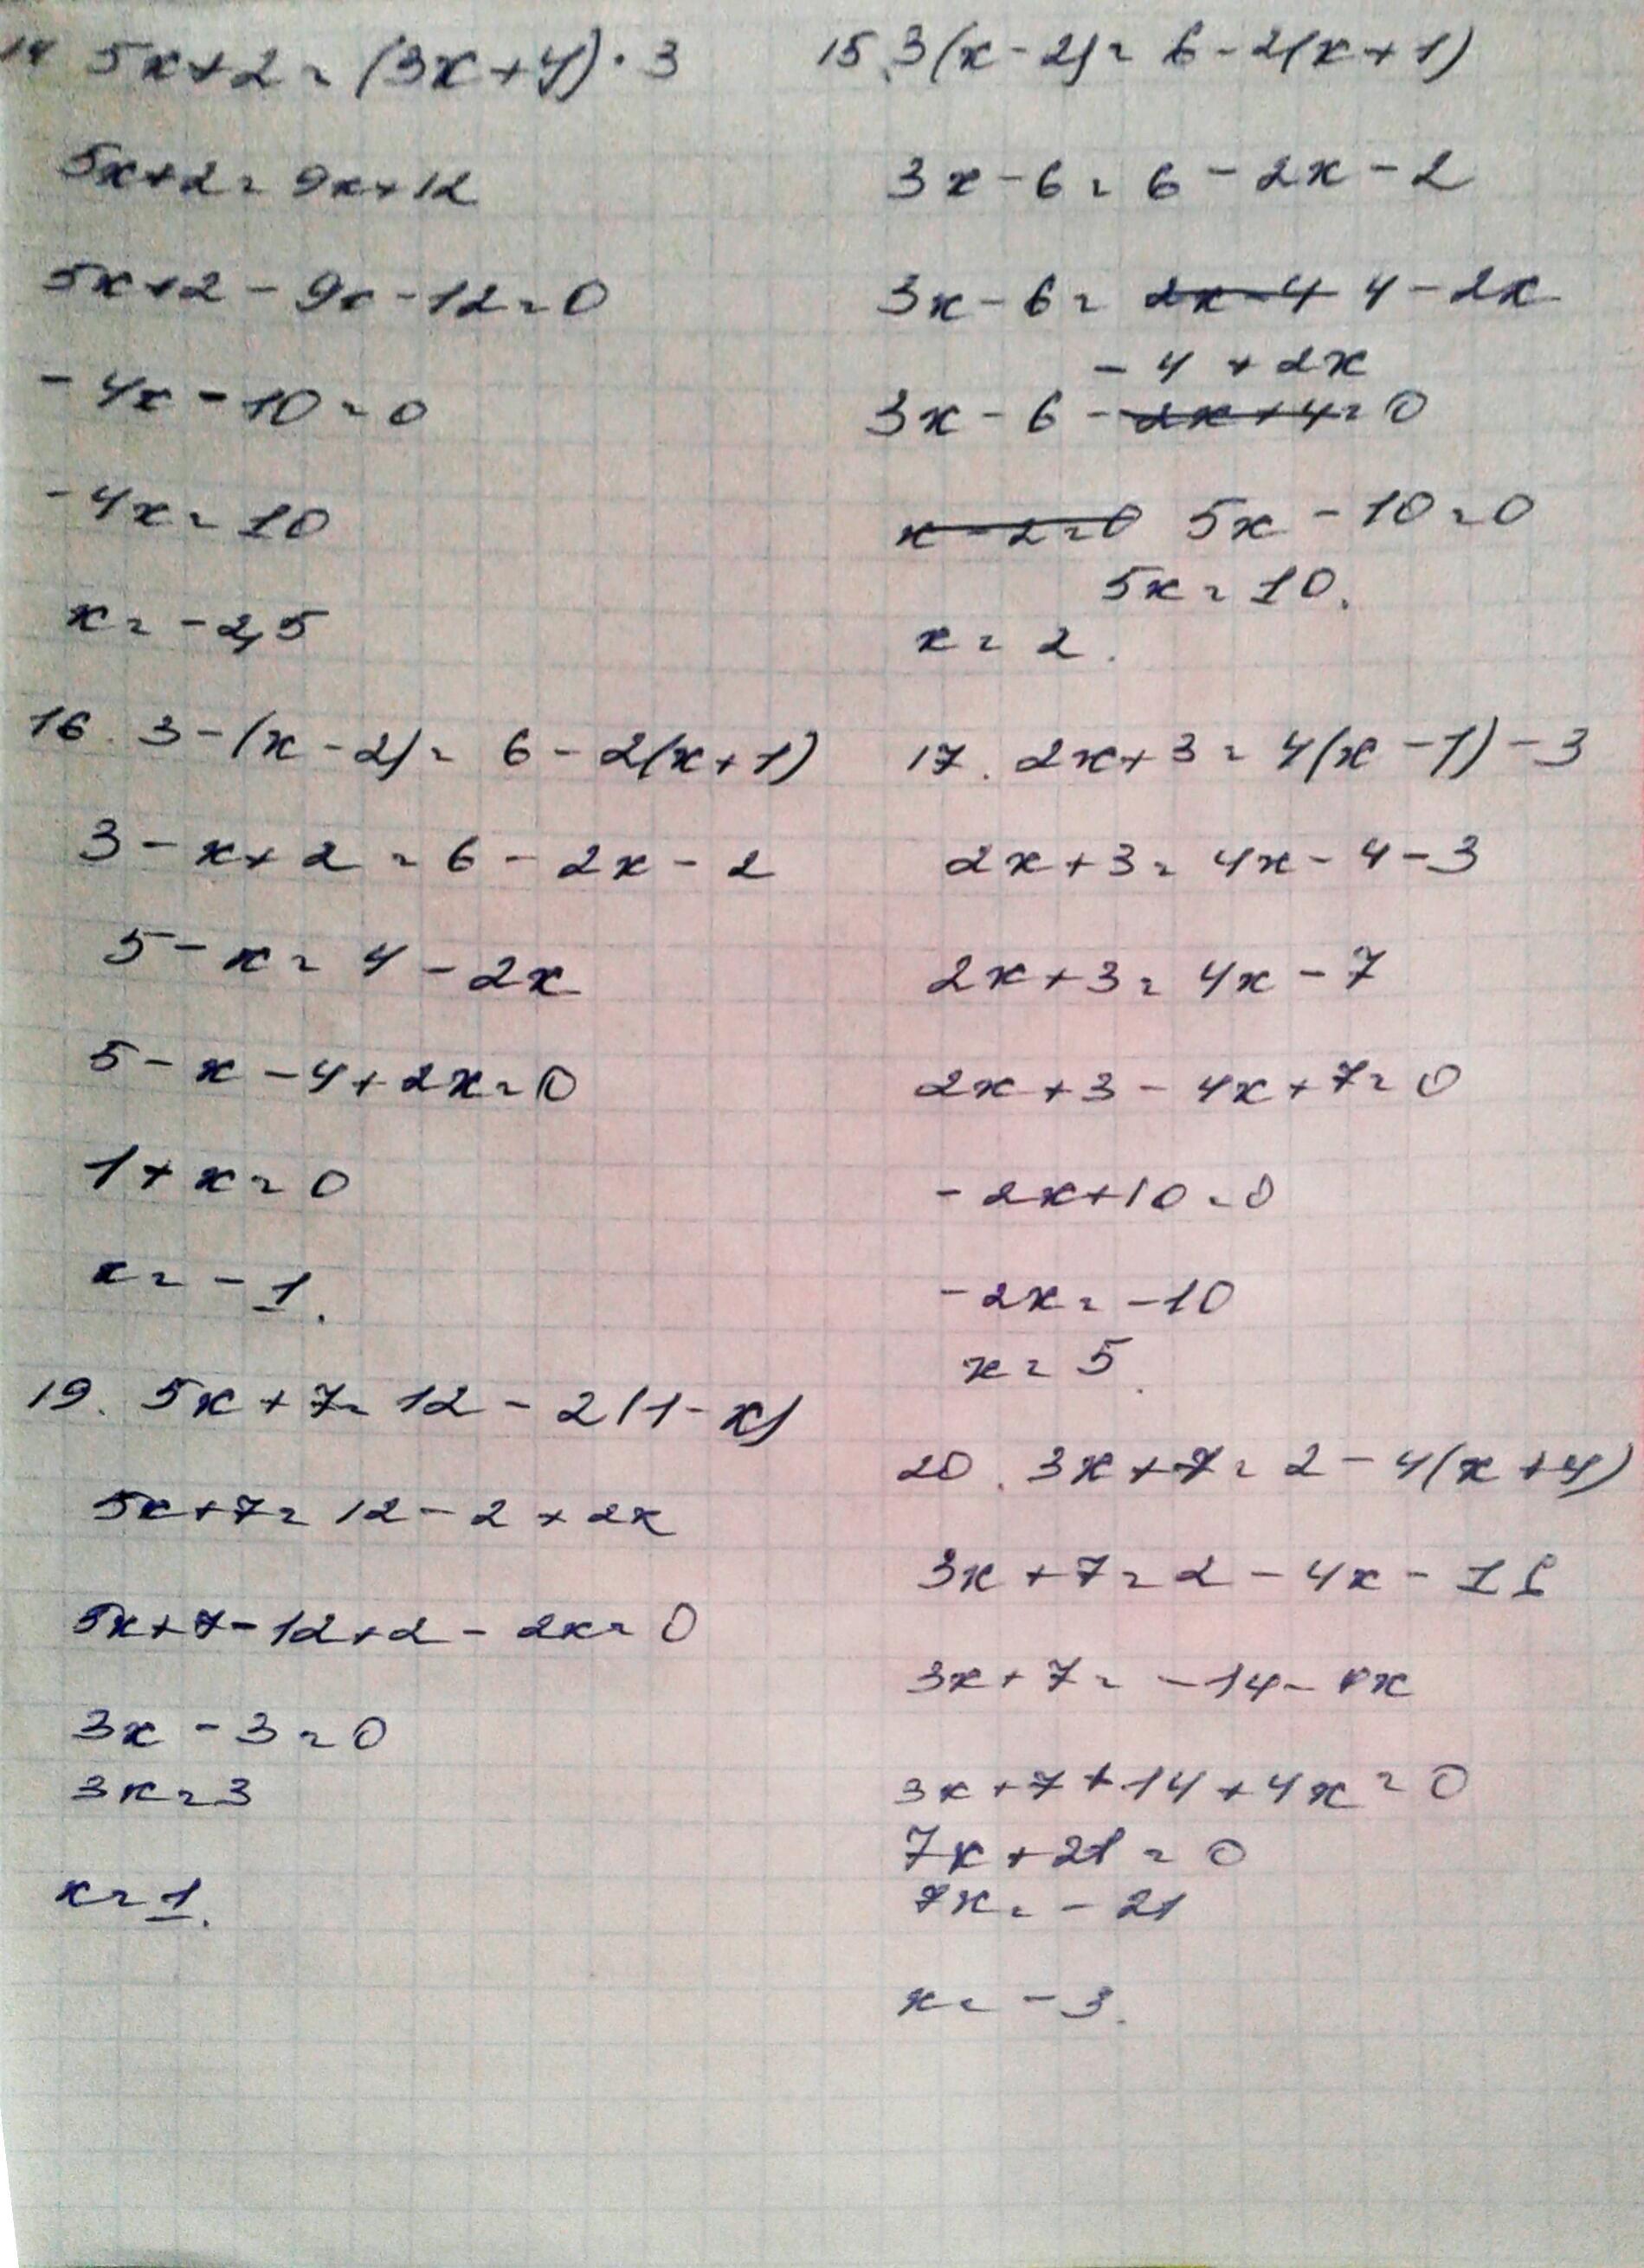 14 5x+2=(3x+4)·3
5x+2=9x+12
5x+2-9x-12=0
-4x-10=0
-4x=10
x=-2,5
15. 3(x-2)=6-2(x+1)
3x-6=6-2x-2
3x-6= 2x-4 4-2x
-4+2x
3x-6-2x+4=0
x-2=0 5x-10=0
5x=10.
x=2.
16. 3-(x-2)=6-2(x+1)
3-x+2=6-2x-2
5-x=4-2x
5-x-4+2x=0
1+x=0
x=-1.
17. 2x+3=4(x-1)-3
2x+3=4x-4-3
2x+3=4x-7
2x+3-4x+7=0
-2x+10=0
-2x=-10
x=5.
19. 5x+7=12-2(1-x)
5x+7=12-2+2x
5x+7-12+2-2x=0
3x-3=0
3x=3
x=1.
20. 3x+7=2-4(x+4)
3x+7=2-4x-16
3x+7=-14-4x
3x+7+14+4x=0
7x+21=0
7x=-21
x=-3.